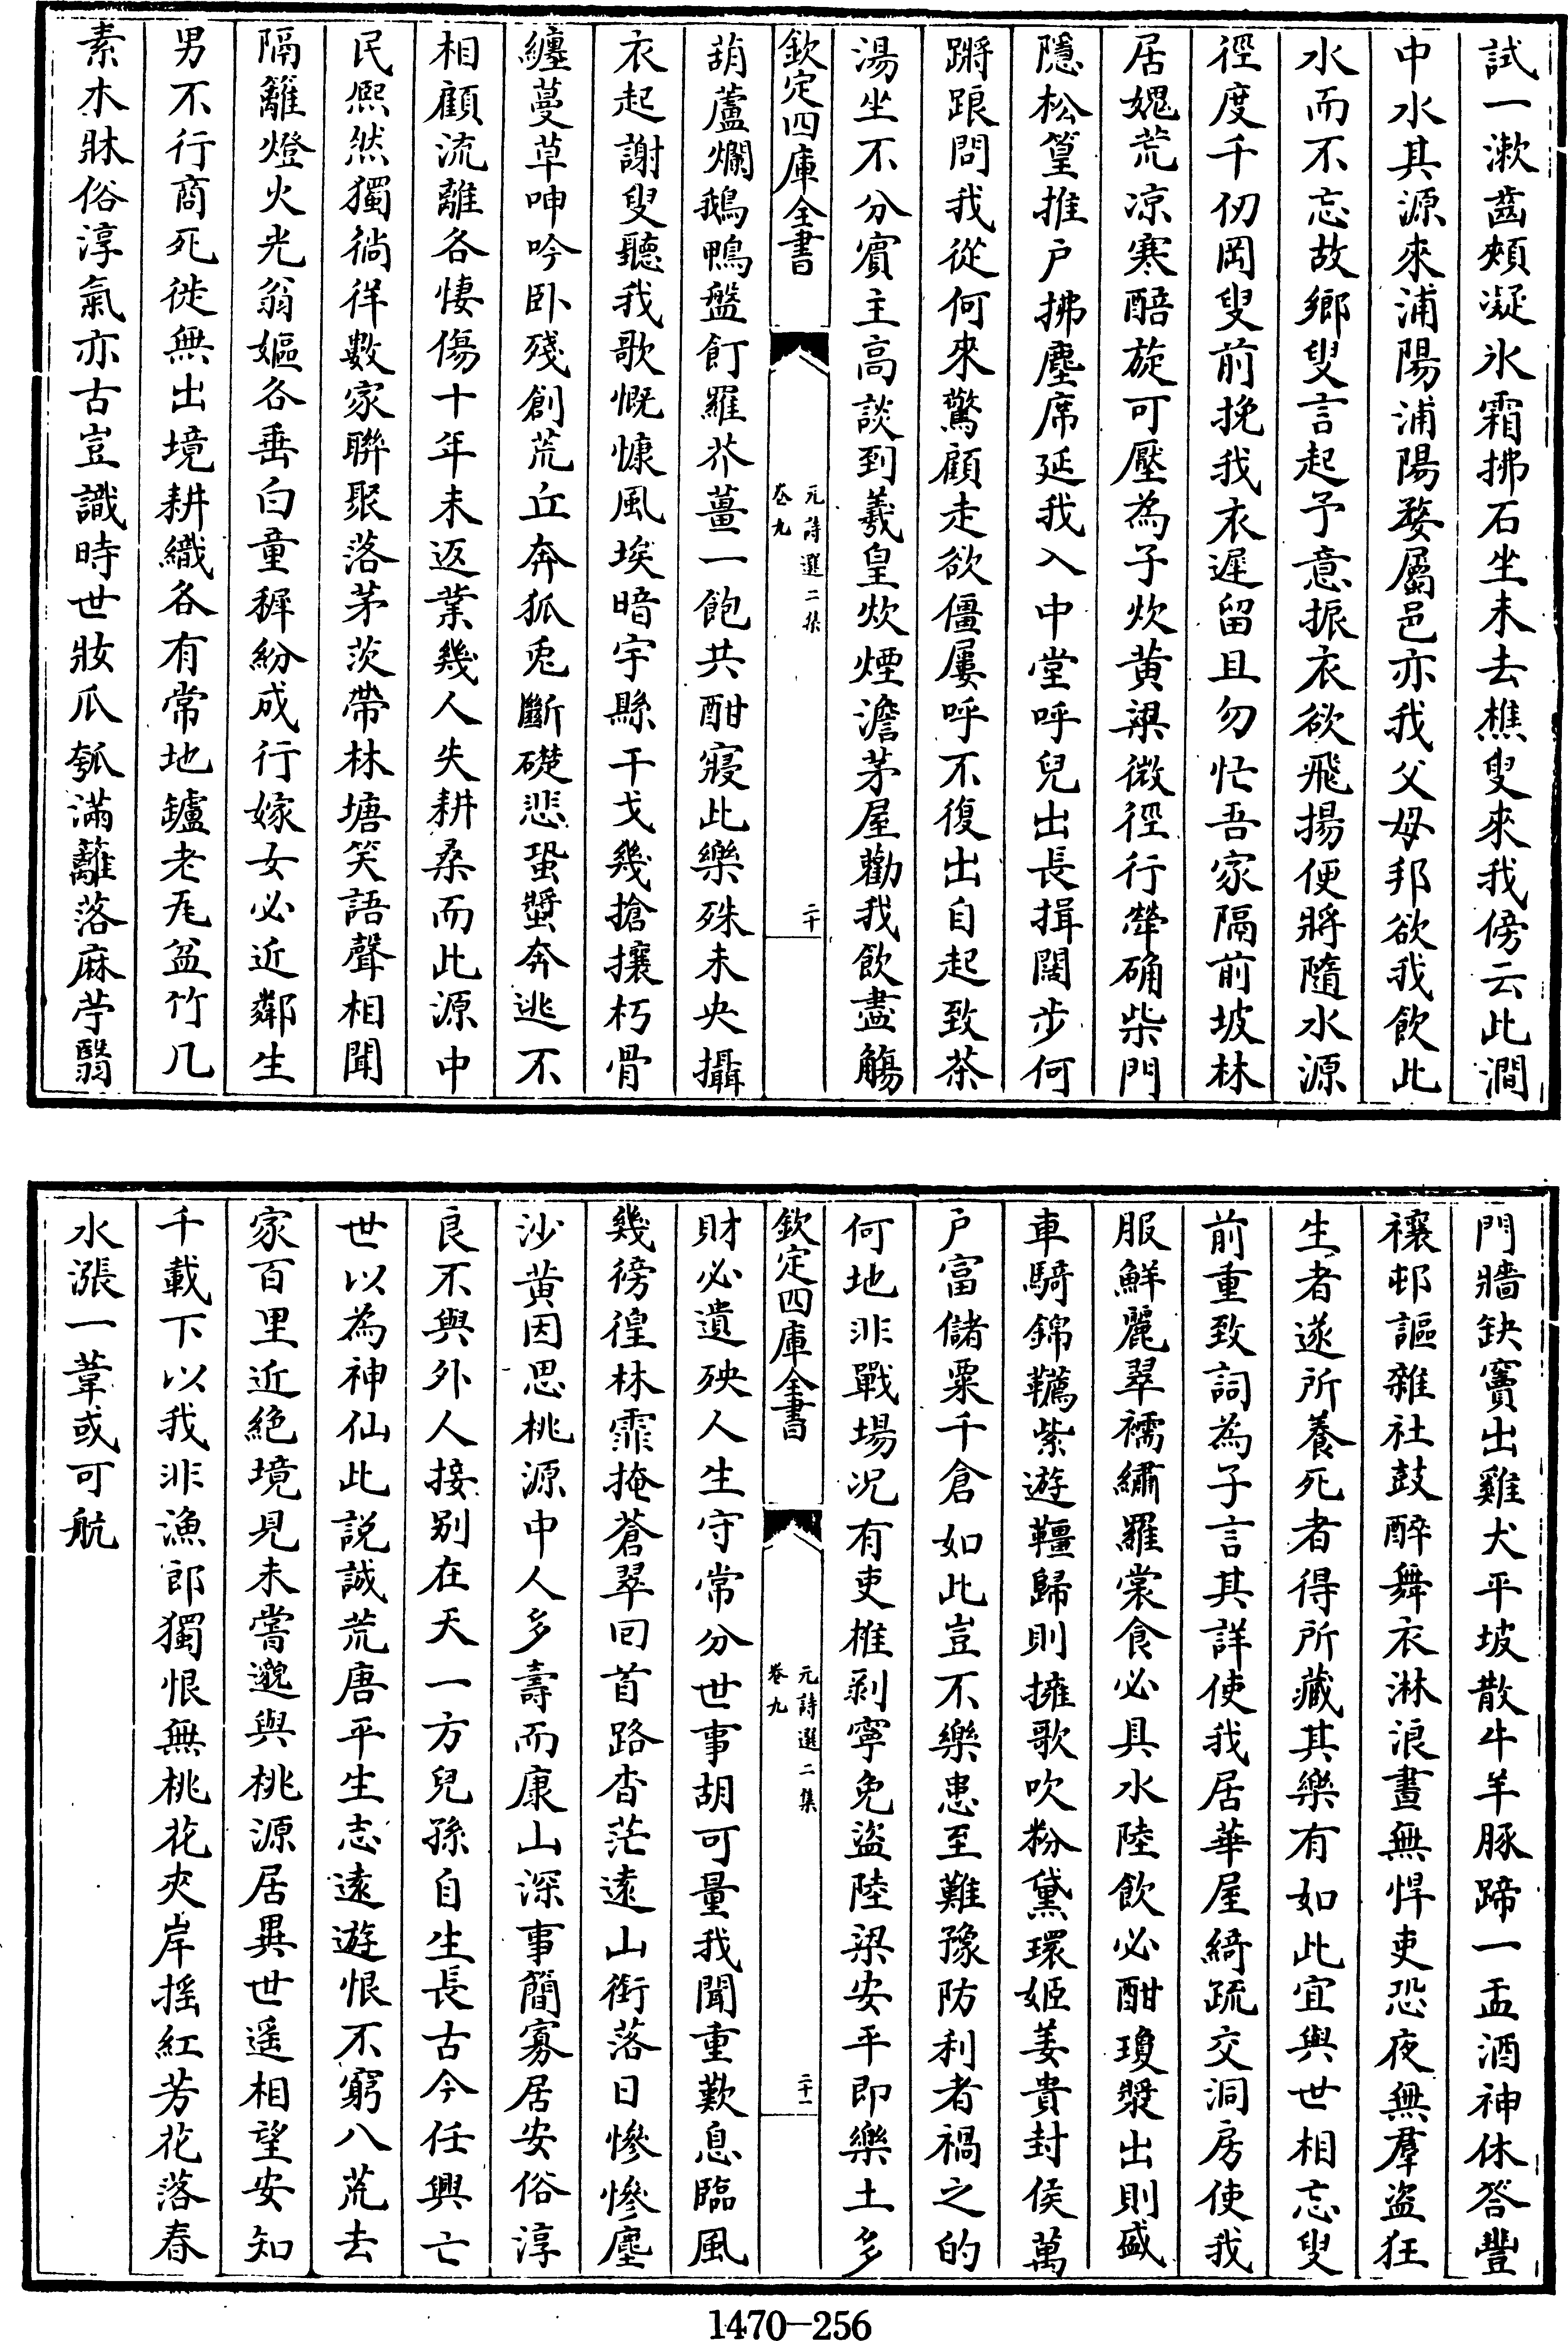 試一漱齒頰凝氷霜拂石坐未去樵叟來我傍云此澗
中水其源來浦陽浦陽婺屬邑亦我父母邦欲我飲此
水而不忘故鄉叟言起予意振衣欲飛揚便將隨水源
徑度千仞岡叟前挽我衣遲留且勿忙吾家隔前坡林
居媿荒凉寒醅旋可壓為子炊黄粱微徑行犖确柴門
隱松篁推户拂塵席延我入中堂呼兒出長揖闊步何
蹡踉問我從何來驚顧走欲僵屢呼不復出自起致茶
湯坐不分賓主高談到羲皇炊煙澹茅屋勸我飲盡觴
欽定四庫全書
元詩選二集
卷九
二十
葫蘆爛鵝鴨盤飣羅芥薑一飽共酣寢此樂殊未央攝
衣起謝叟聽我歌慨慷風埃暗宇縣干戈幾搶攘朽骨
纏蔓草呻吟卧殘創荒丘奔狐兎斷礎悲蛩螿奔逃不
相顧流離各悽傷十年未返業幾人失耕桑而此源中
民熙然獨徜徉數家聯聚落茅茨帶林塘笑語聲相聞
隔籬燈火光翁嫗各垂白童穉紛成行嫁女必近鄰生
男不行商死徙無出境耕織各有常地鑪老瓦盆竹几
素木牀俗淳氣亦古豈識時世妝瓜瓠滿籬落麻苧翳
門牆缺竇出雞犬平坡散牛羊豚蹄一盂酒神休答豐
禳邨謳雜社鼓醉舞衣淋浪晝無悍吏恐夜無羣盗狂
生者遂所養死者得所藏其樂有如此宜與世相忘叟
前重致詞為子言其詳使我居華屋綺疏交洞房使我
服鮮麗翠襦繡羅裳食必具水陸飲必酣瓊漿出則盛
車騎錦韉紫遊韁歸則擁歌吹粉黛環姬姜貴封侯萬
户富儲粟千倉如此豈不樂患至難豫防利者禍之的
何地非戰場况有吏椎剥寧免盜陸梁安平即樂土多
欽定四庫全書
元詩選二集
卷九
二十一
財必遺殃人生守常分世事胡可量我聞重歎息臨風
幾徬徨林霏掩蒼翠回首路杳茫遠山銜落日慘慘塵
沙黄因思桃源中人多壽而康山深事簡寡居安俗淳
良不與外人接别在天一方兒孫自生長古今任興亡
世以為神仙此説誠荒唐平生志遠遊恨不窮八荒去
家百里近絶境見未嘗邈與桃源居異世遥相望安知
千載下以我非漁郎獨恨無桃花夾岸摇紅芳花落春
水漲一葦或可航
1470—256